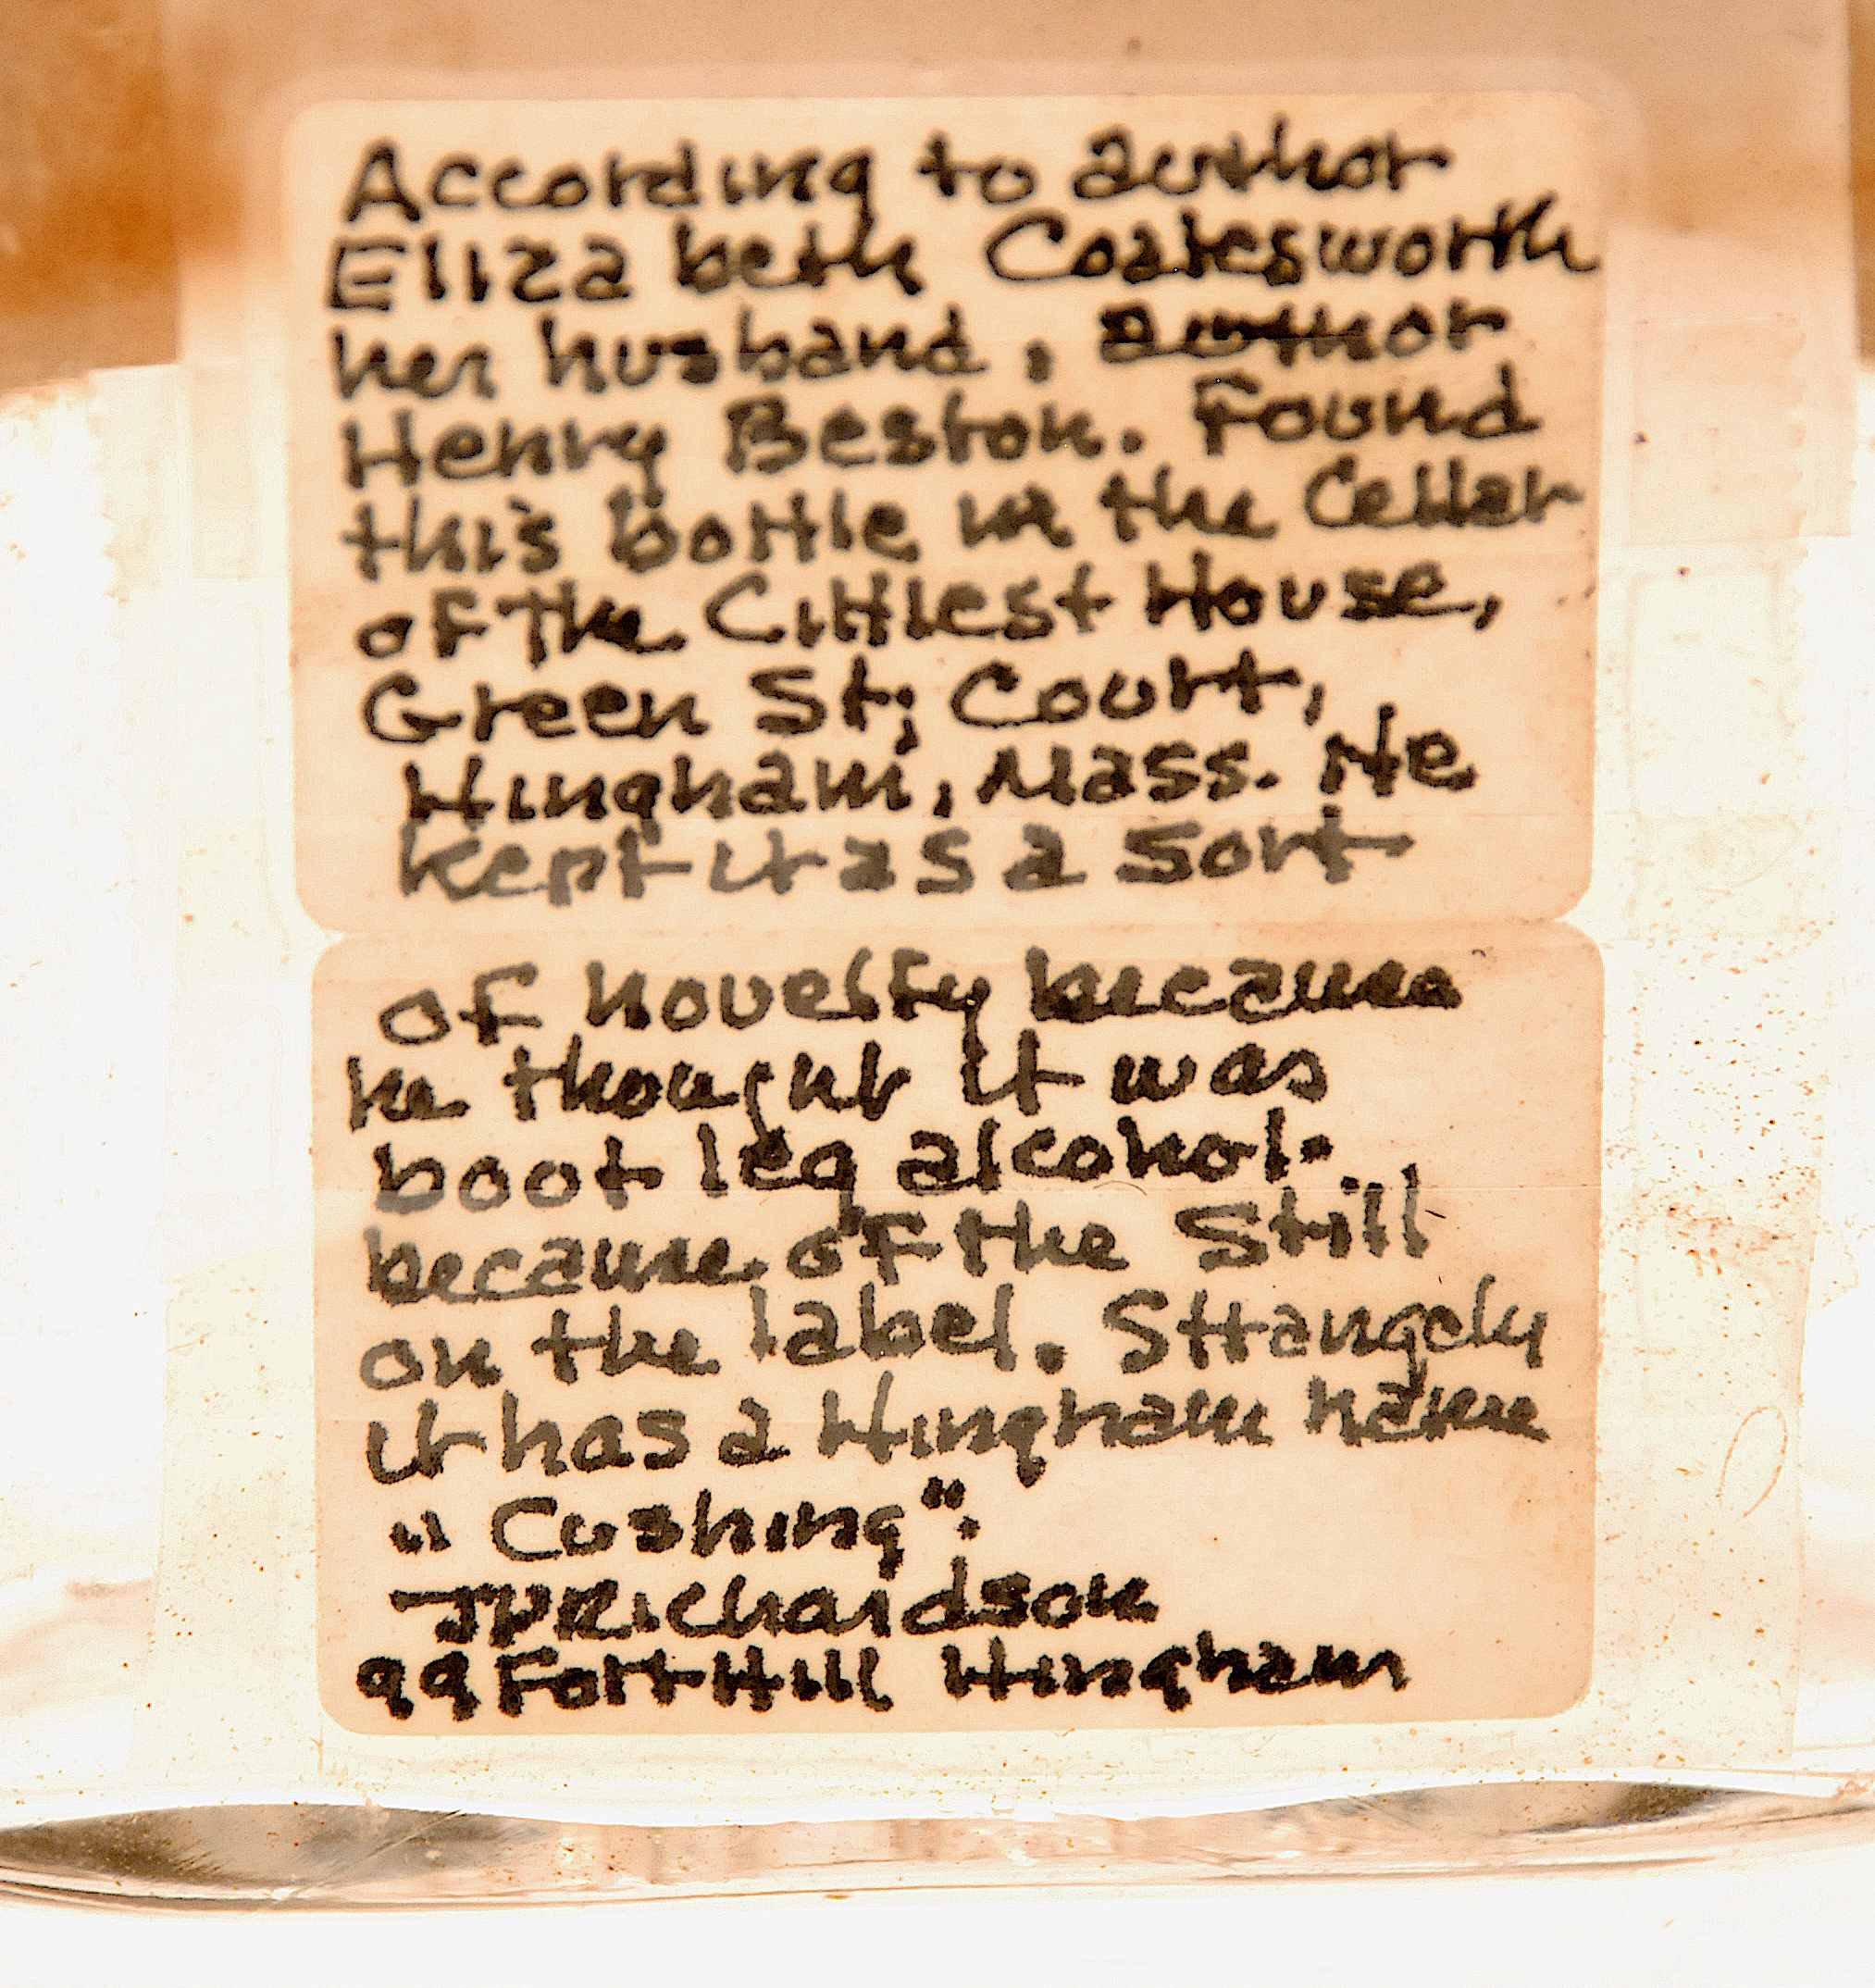 According to author
Elizabeth Coatesworth
her husband, author
Henry Beston. Found
this bottle in the Cellar
of The Littlest House,
Green St; Court,
Hingham, Mass. He
kept it as a sort
of novelty because
he thought it was
boot leg alcohol.
because of the Still
on the label. Strangely
it has a Hingham name
"Cushing".
JPRichardson
99 Fort Hill Hingham